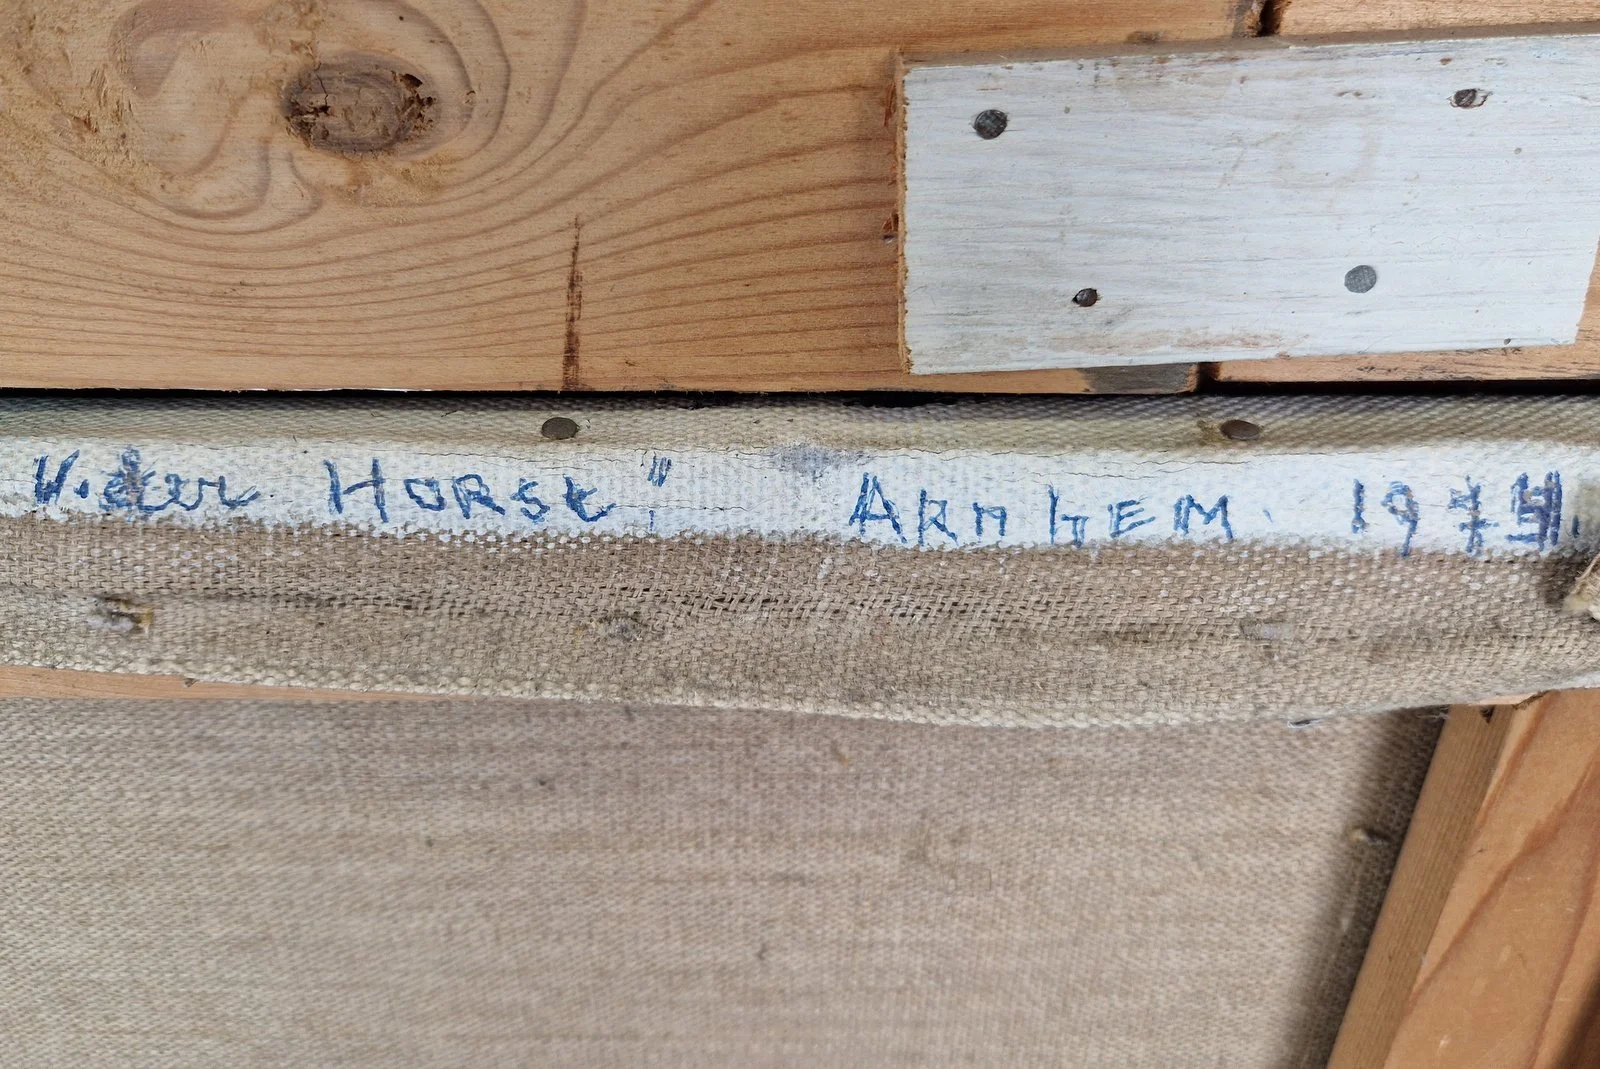 v.der HORST" ARnhEM. 197